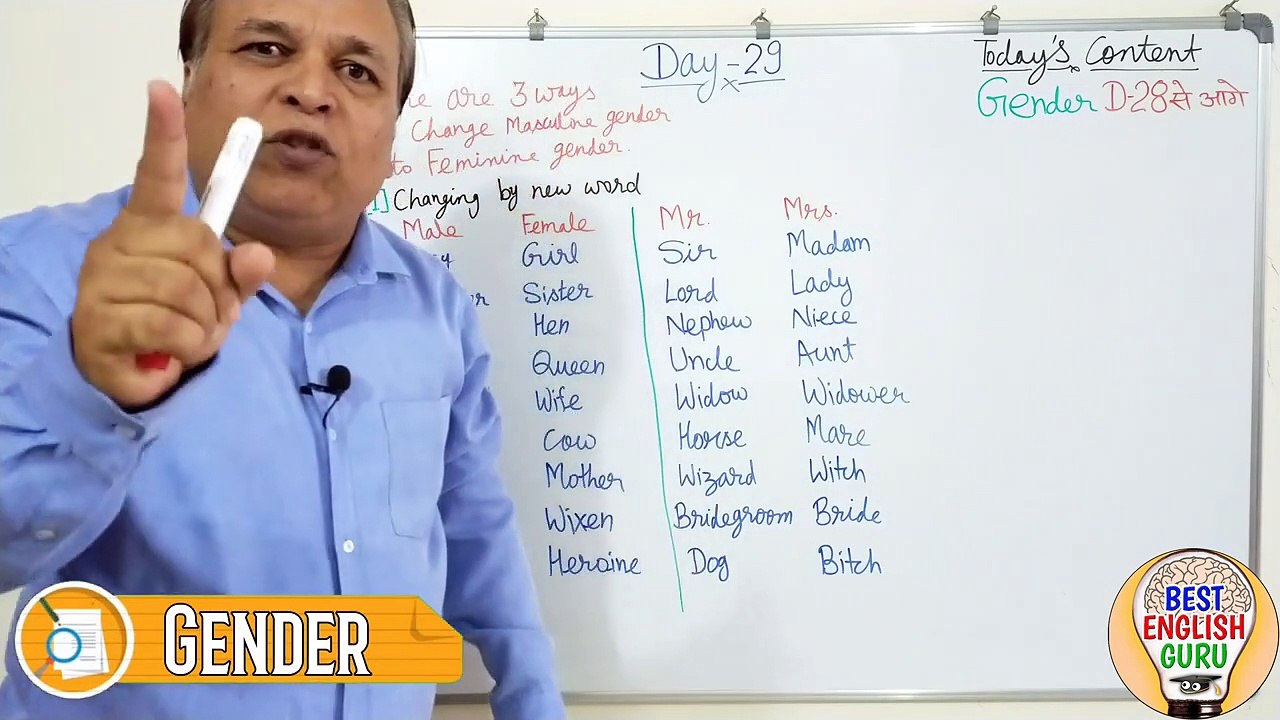 Day-29
Today's Content
Gender D-28 से आगे
are 3 ways
Change Masculine gender
to Feminine gender.
1] Changing by new word
Male Female Mr. Mrs.
Girl Sir Madam
Sister Lord Lady
Hen Nephew Niece
Queen Uncle Aunt
Wife Widow Widower
Cow Horse Mare
Mother Wizard Witch
Wixen Bridegroom Bride
Heroine Dog Bitch
GENDER
BEST
ENGLISH
GURU